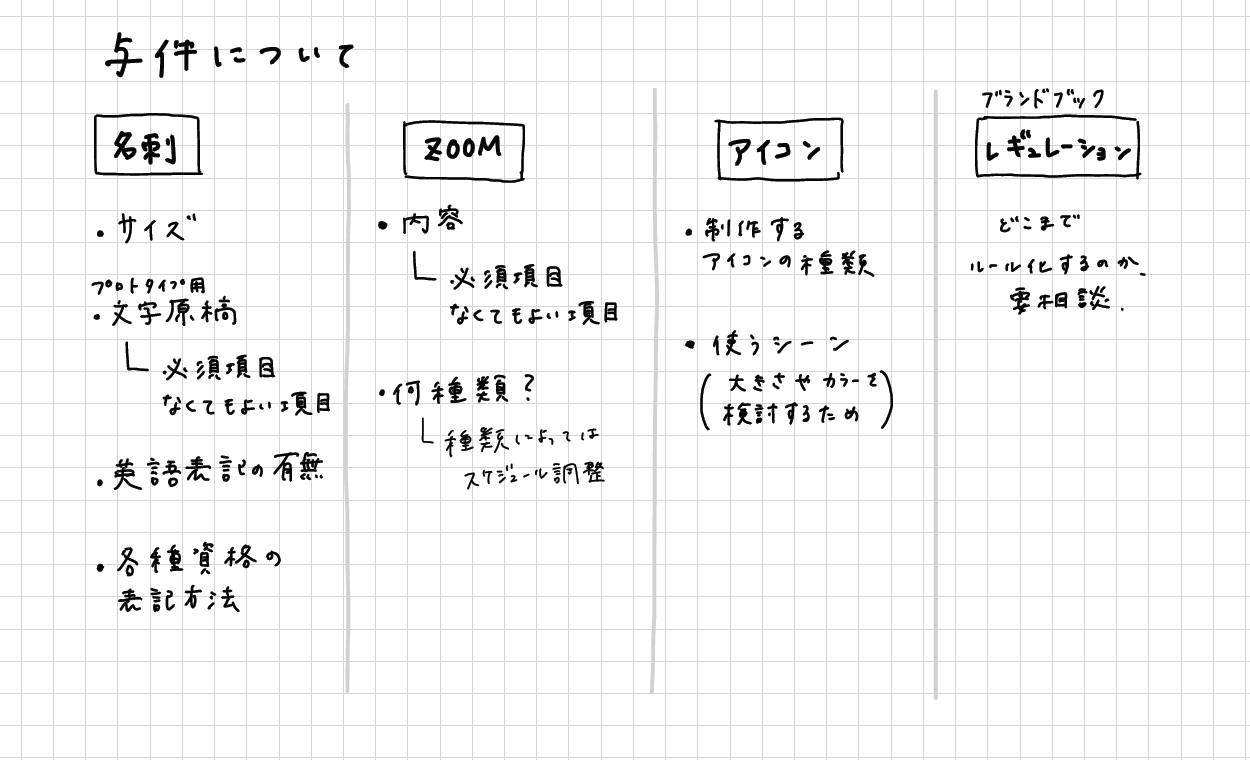 与件について
名刺
・サイズ
プロトタイプ用
・文字原稿
必須項目
なくてもよい項目
・英語表記の有無
・各種資格の
表記方法
ZOOM
・内容
必須項目
なくてもよい項目
・何種類？
種類によっては
スケジュール調整
アイコン
・制作する
アイコンの種類
・使うシーン
（大きさやカラーを
検討するため）
ブランドブック
レギュレーション
どこまで
ルール化するのか、
要相談．